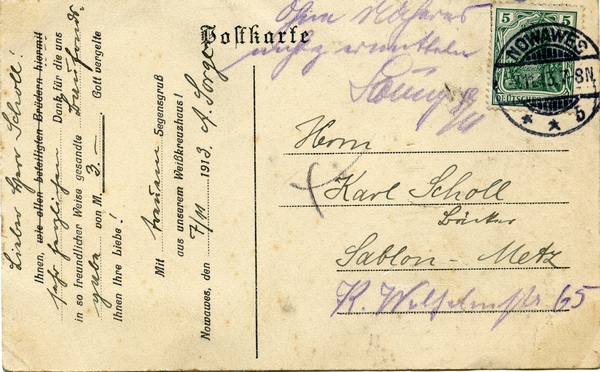 Lieber Herr Scholl!
Ihnen, wie allen beteiligten Brüdern hiermit
sehr herzlichen Dank für die uns
in so freundlicher Weise gesandte
gabe von M. 3.— Gott vergelte
Ihnen Ihre Liebe!
Mit treuem Segensgruß
aus unserem Weißkreuzhaus!
Nowawes, den 7/11 1913. A. Sorge
Postkarte
Ohne Näheres
nicht zu ermitteln
5 5
NOWAWES
7-8N.
* * b
Herrn
Karl Scholl
Bäcker
Sablon - Metz
K. Wilhelmstr 65